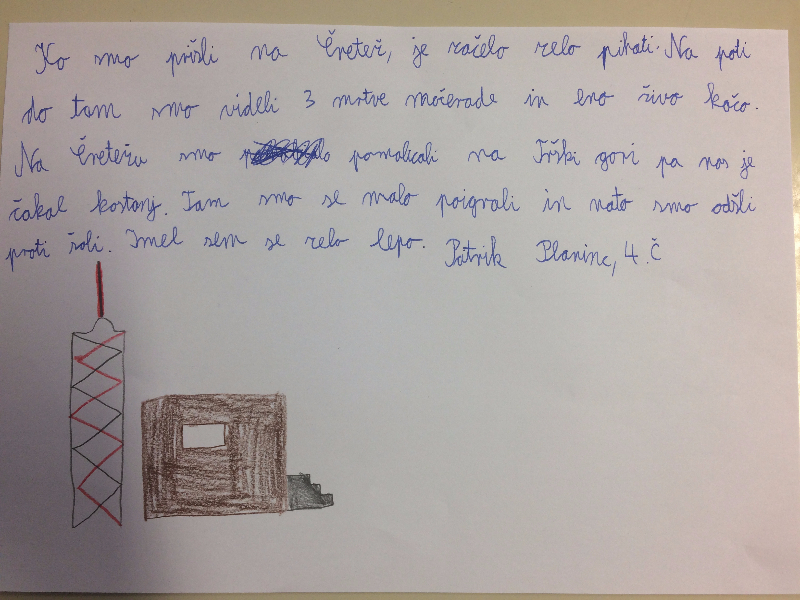 Ko smo prišli na Čretež, je začelo zelo pihati. Na poti
do tam smo videli 3 mrtve močerade in eno živo kačo.
Na Čretežu smo pomalicali na Trški gori pa nas je
čakal kostanj. Tam smo se malo poigrali in nato smo odšli
proti šoli. Imel sem se zelo lepo. Patrik Planinc, 4.Č